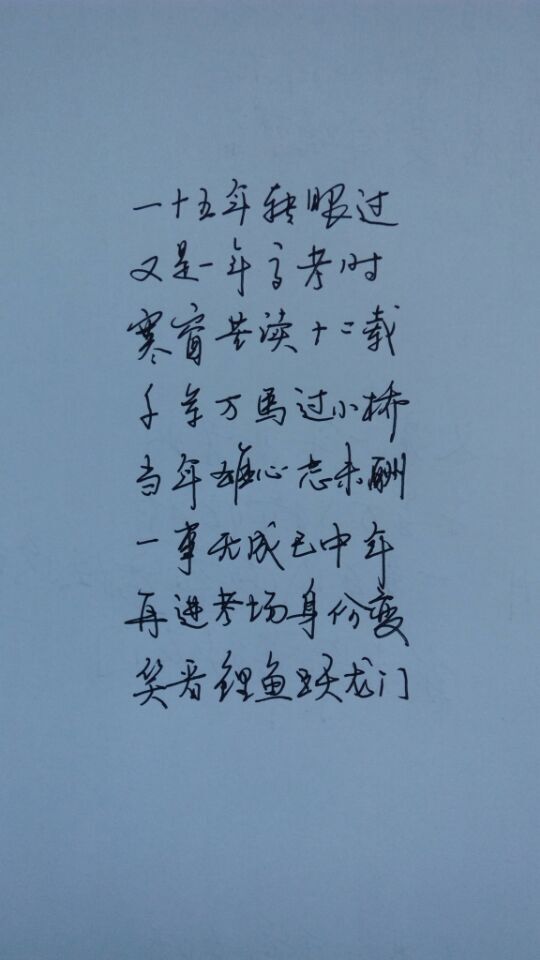 一十五年转眼过
又是一年高考时
寒窗共读十二载
千军万马过小桥
当年雄心志未酬
一事无成已中年
再进考场身份变
笑看鲤鱼跃龙门